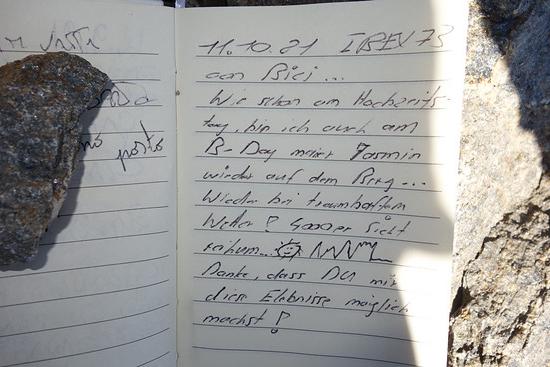 posto
11.10.21 IBEX 73
con Bici...
Wie schon am Hochzeits-
tag, bin ich auch am
B-Day meiner Jasmin
wieder auf dem Berg...
Wieder bei traumhaftem
Wetter! 5000er Sicht
Danke, dass DU mir
diese Erlebnisse möglich
machst!